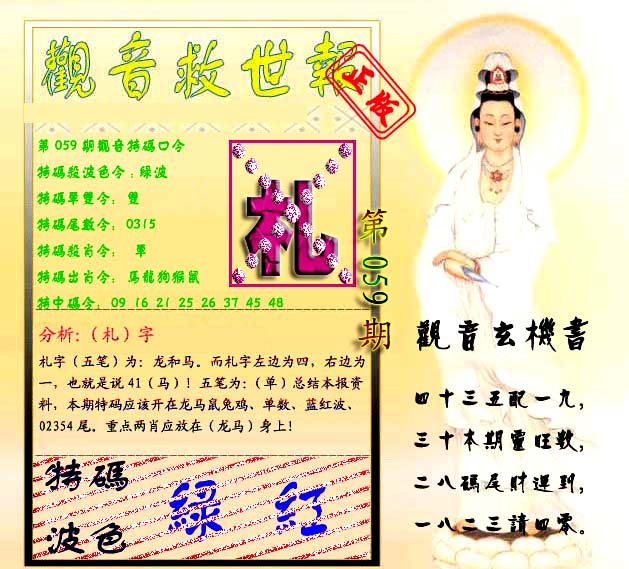 觀音救世報
正版
第059期觀音特碼口令
特碼殺波色令:綠波
特碼單雙令: 雙
特碼尾數令: 0315
特碼殺肖令: 單
特碼出肖令: 馬龍狗猴鼠
特中碼令: 09 16 21 25 26 37 45 48
札
第059期
分析:（札）字
札字（五笔）为：龙和马。而札字左边为四，右边为
一，也就是说41（马）！五笔为：（单）总结本报资
料，本期特码应该开在龙马鼠兔鸡、单数、蓝红波、
02354尾。重点两肖应放在（龙马）身上！
特碼
波色
綠 紅
觀音玄機書
四十三五配一九，
三十本期靈旺数，
二八碼尾財運到，
一八二三請四零。